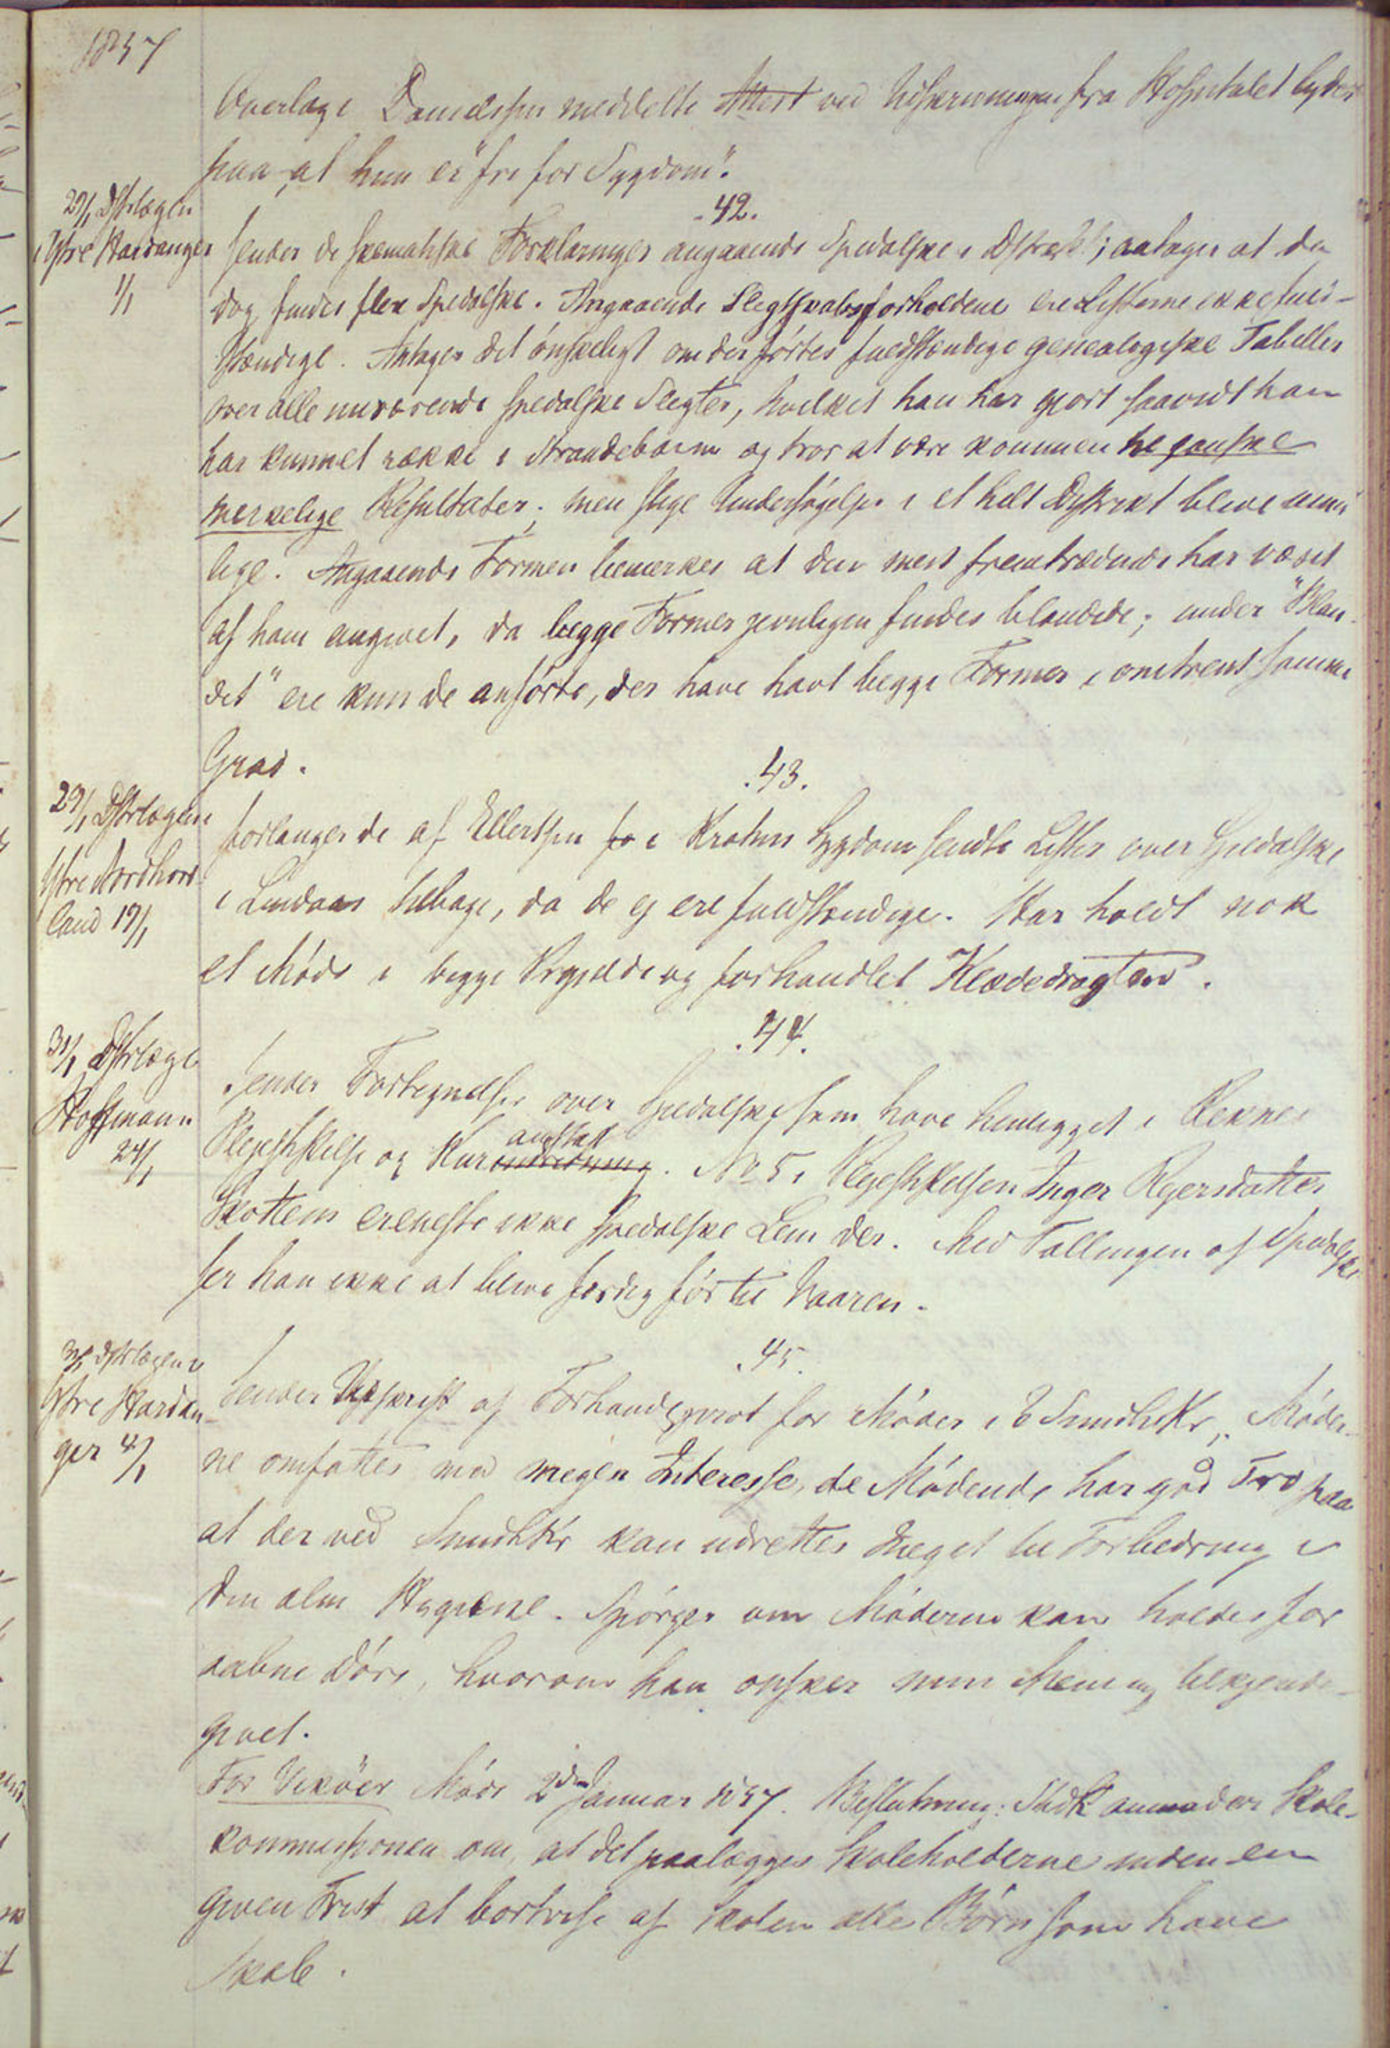 1857
Overlæge Danielssen meddelte Attest ved Udskrivningen fra Hospitalet lyder
paa, at hun er "fri for Sygdom".
29/1 Dstrlægen
i Ytre Hardanger
1/1
42.
Sender de skematiske Forklaringer angaaende Spedalske i Distrikt; antager at der
dog findes flere Spedalske. Angaaende Slegtskabsforholdene ere Listerne ikke fuld-
stændige. Antager det ónskeligt om der førtes fuldstændige genealogiske Tabeller
over alle nuværende spedalske Slegter, hvilket han har gjort saavidt han
har kunnet række i Strandebarm og tror at være kommen til ganske
merkelige Resultater; men slige Undersøgelser i et helt Distrikt blive umu
lige. Angaaende Formen bemærkes at den mest fremtrædende har været
af ham angivet, da begge Former jevnligen findes blandede; under "Blan-
det" ere kun de anførte, der have havt begge Former i omtrent samme
Grad.
29/1 Dstrlægen
Ytre Nordhord
land 19/1
43.
forlanger de af Ellertsen fo i Krohns Sygdom sendte Lister over Spedalske
i Lindaas tilbage, da de ej ere fuldstændige. Har holdt nok
et Møde i begge Prgjeld og forhandlet Klædedragten.
31/1 Dstrlæge
Hoffmann
24/1
44.
Sender Fortegnelse over Spedalske som have henligget i Reknes
Plejestiftelse og Kurindretning anstalt. No 5 i Plejestiftelsen Inger Rejersdatter
Skottem er eneste ikke spedalske Lem der. Med Tællingen af Spedalske
ser han ikke at blive færdig før til Vaaren.
31/1 Dstrlægen i
Ytre Hardan
ger 4/1
45.
Sender Udskrift af Forhandlsprot for Møder i 2 SundhKr,. Møder-
ne omfattes med megen Interesse, de Mødende har god Tro paa
at der ved SundhKr kan udrettes Meget til Forbedring i
den alm Hygiene. Spórger om Møderne kan holdes for
aabne Døre, hvorom han ønsker min Mening tilkjende-
givet.
For Vikóer Møde 2den Januar 1857. Beslutning: SndK anmoder Skole-
kommissionen om, at det paalægges Skoleholderne inden en
given Frist at bortvise af Skolen alle Børn som have
Skab.